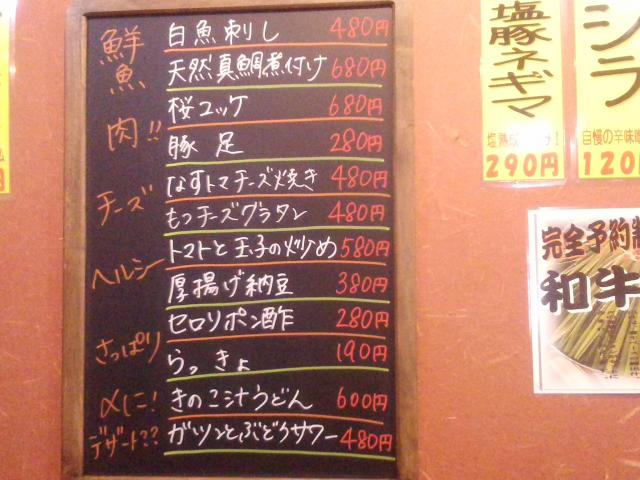 鮮魚
白魚刺し 480円
天然真鯛煮付け 680円
肉!!
桜ユッケ 680円
豚足 280円
チーズ
なすトマチーズ焼き 480円
もっチーズグラタン 480円
ヘルシー
トマトと玉子の炒め 580円
厚揚げ納豆 380円
さっぱり
セロリポン酢 280円
らっきょ 190円
〆に!
きのこ汁うどん 600円
デザート??
ガツンとぶどうサワー 480円
塩豚ネギマ
290円
シラ
自慢の辛味
120
完全予約制
和牛
円